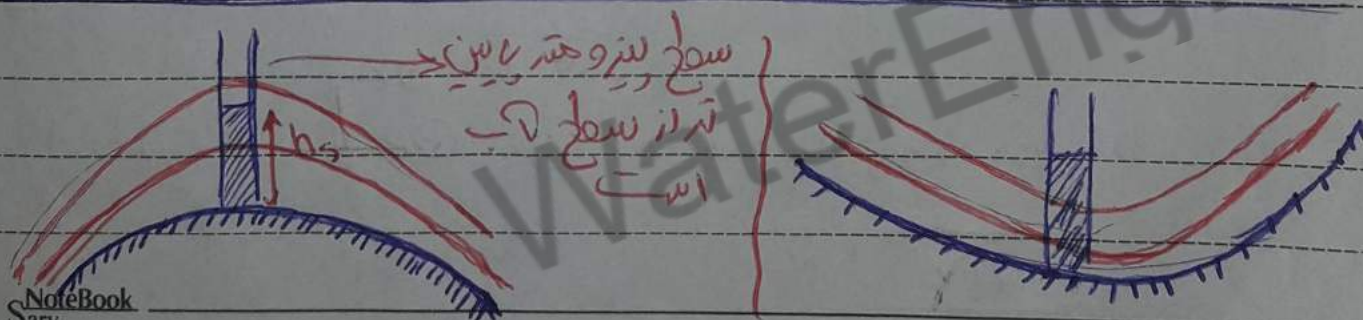 سطح پیزومتر پایین
تر از سطح آب
است
hs
WaterEng
NoteBook
Sary